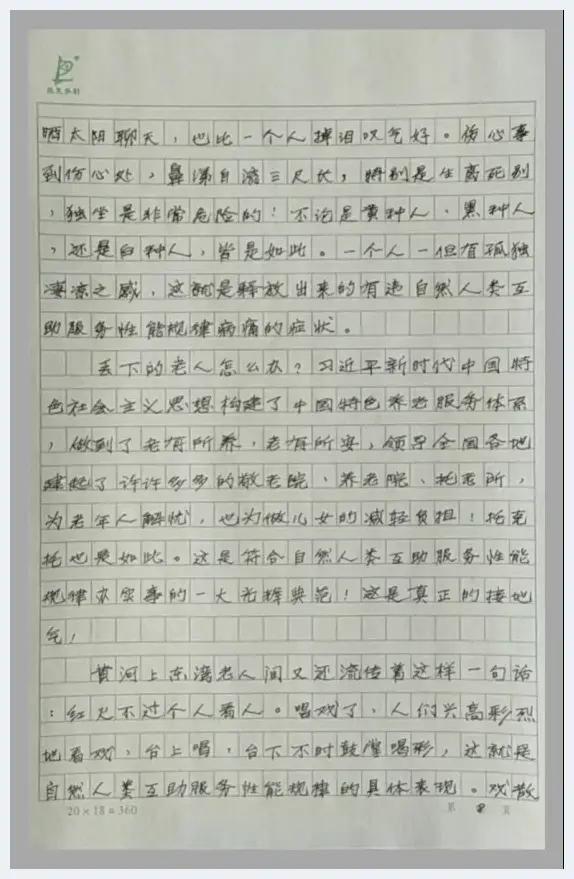 晒太阳聊天，也比一个人掉泪叹气好。伤心事
到伤心处，鼻涕自流三尺长，特别是生离死别
，独坐是非常危险的！不论是黄种人、黑种人
，还是白种人，皆是如此。一个人一但有孤独
凄凉之感，这就是释放出来的有违自然人类互
助服务性能规律病痛的症状。
丢下的老人怎么办？习近平新时代中国特
色社会主义思想构建了中国特色养老服务体系
，做到了老有所养，老有所安，领导全国各地
建起了许许多多的敬老院、养老院、托老所，
为老年人解忧，也为做儿女的减轻负担！托克
托也是如此。这是符合自然人类互助服务性能
规律求实事的一大光辉典范！这是真正的接地
气！
黄河上东湾老人间又还流传着这样一句话
：红火不过个人看人。唱戏了，人们兴高彩烈
地看戏，台上唱，台下不时鼓掌喝彩，这就是
自然人类互助服务性能规律的具体表现。戏散
20×18=360
第 页